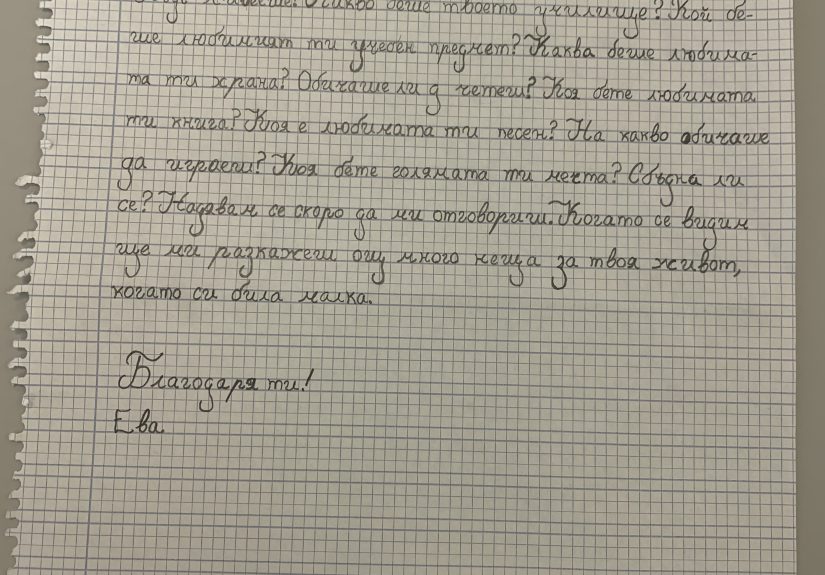 беше твоето училище? Кой бе-
ше любимият ти учебен предмет? Каква беше любима-
та ти храна? Обичаше ли д четеш? Коя бете любимата
ти книга? Коя е любимата ти песен? На какво обичаше
да играеш? Коя бете голямата ти мечта? Сбъдна ли
се? Надявам се скоро да ми отговориш. Когато се видим
ще ми разкажеш ощ много неща за твоя живот,
когато си била малка.
Благодаря ти!
Ева